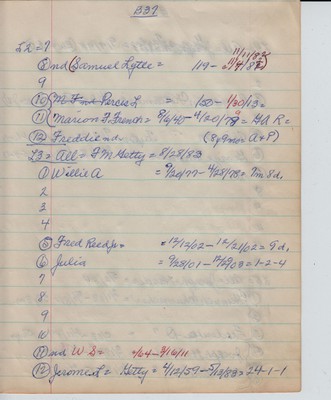 B37
22=7
⑧ nd (Samuel Lytle = 119 - 11/9/82)
11/11/82
9
⑩ (M Find Percis L = 150 - 4/30/13 =
⑪ (Marion F. French = 8/6/40 - 4/20/78 = Gd R =
⑫ Freddie nd. (8,9 mo = A & P)
23 = All = F M Getty = 8/28/83
① Willie A = 9/20/77 - 4/28/78 = 7m 8d.
2
3
4
⑤ Fred Reed Jr = = 12/12/02 - 12/21/02 = 9 d.
⑥ Julia = 9/28/01 - 12/2/03 = 1-2-4
7
8
9
10
⑪ nd W S = /64 - 3/16/11
⑫ Jerome L = Getty = 4/12/59 - 5/13/83 = 24-1-1